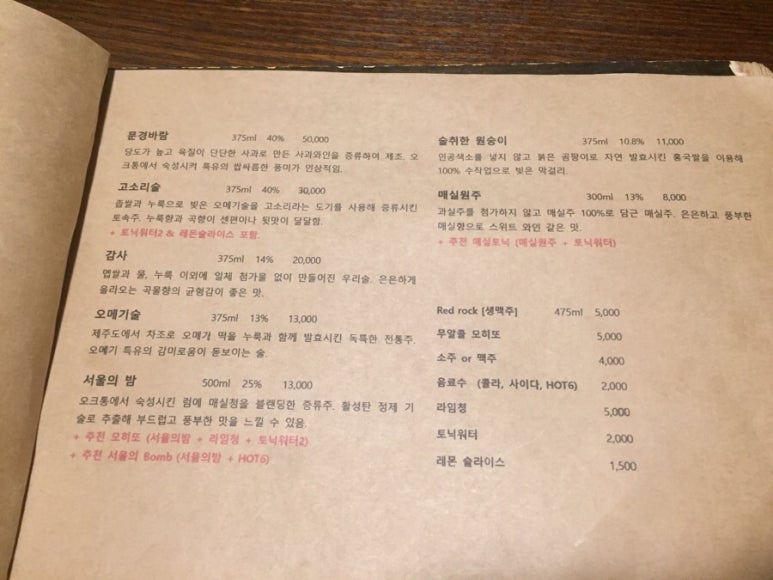 문경바람 375ml 40% 50,000
당도가 높고 육질이 단단한 사과로 만든 사과와인을 증류하여 제조. 오
크통에서 숙성시켜 특유의 쌉싸름한 풍미가 인상적임.
고소리술 375ml 40% 30,000
좁쌀과 누룩으로 빚은 오메기술을 고소리라는 도기를 사용해 증류시킨
토속주. 누룩향과 곡향이 센편이나 뒷맛이 달달함.
+ 토닉워터2 & 레몬슬라이스 포함.
감사 375ml 14% 20,000
멥쌀과 물, 누룩 이외에 일체 첨가물 없이 만들어진 우리술. 은은하게
올라오는 곡물향의 균형감이 좋은 맛.
오메기술 375ml 13% 13,000
제주도에서 차조로 오메기 떡을 누룩과 함께 발효시킨 독특한 전통주.
오메기 특유의 감미로움이 돋보이는 술.
서울의 밤 500ml 25% 13,000
오크통에서 숙성시킨 럼에 매실청을 블랜딩한 증류주. 활성탄 정제 기
술로 추출해 부드럽고 풍부한 맛을 느낄 수 있음.
+ 추천 모히또 (서울의밤 + 라임청 + 토닉워터2)
+ 추천 서울의 Bomb (서울의밤 + HOT6)
술취한 원숭이 375ml 10.8% 11,000
인공색소를 넣지 않고 붉은 곰팡이로 자연 발효시킨 홍국쌀을 이용해
100% 수작업으로 빚은 막걸리.
매실원주 300ml 13% 8,000
과실주를 첨가하지 않고 매실주 100%로 담근 매실주. 은은하고 풍부한
매실향으로 스위트 와인 같은 맛.
+ 추천 매실토닉 (매실원주 + 토닉워터)
Red rock [생맥주] 475ml 5,000
무알콜 모히또 5,000
소주 or 맥주 4,000
음료수 (콜라, 사이다, HOT6) 2,000
라임청 5,000
토닉워터 2,000
레몬 슬라이스 1,500